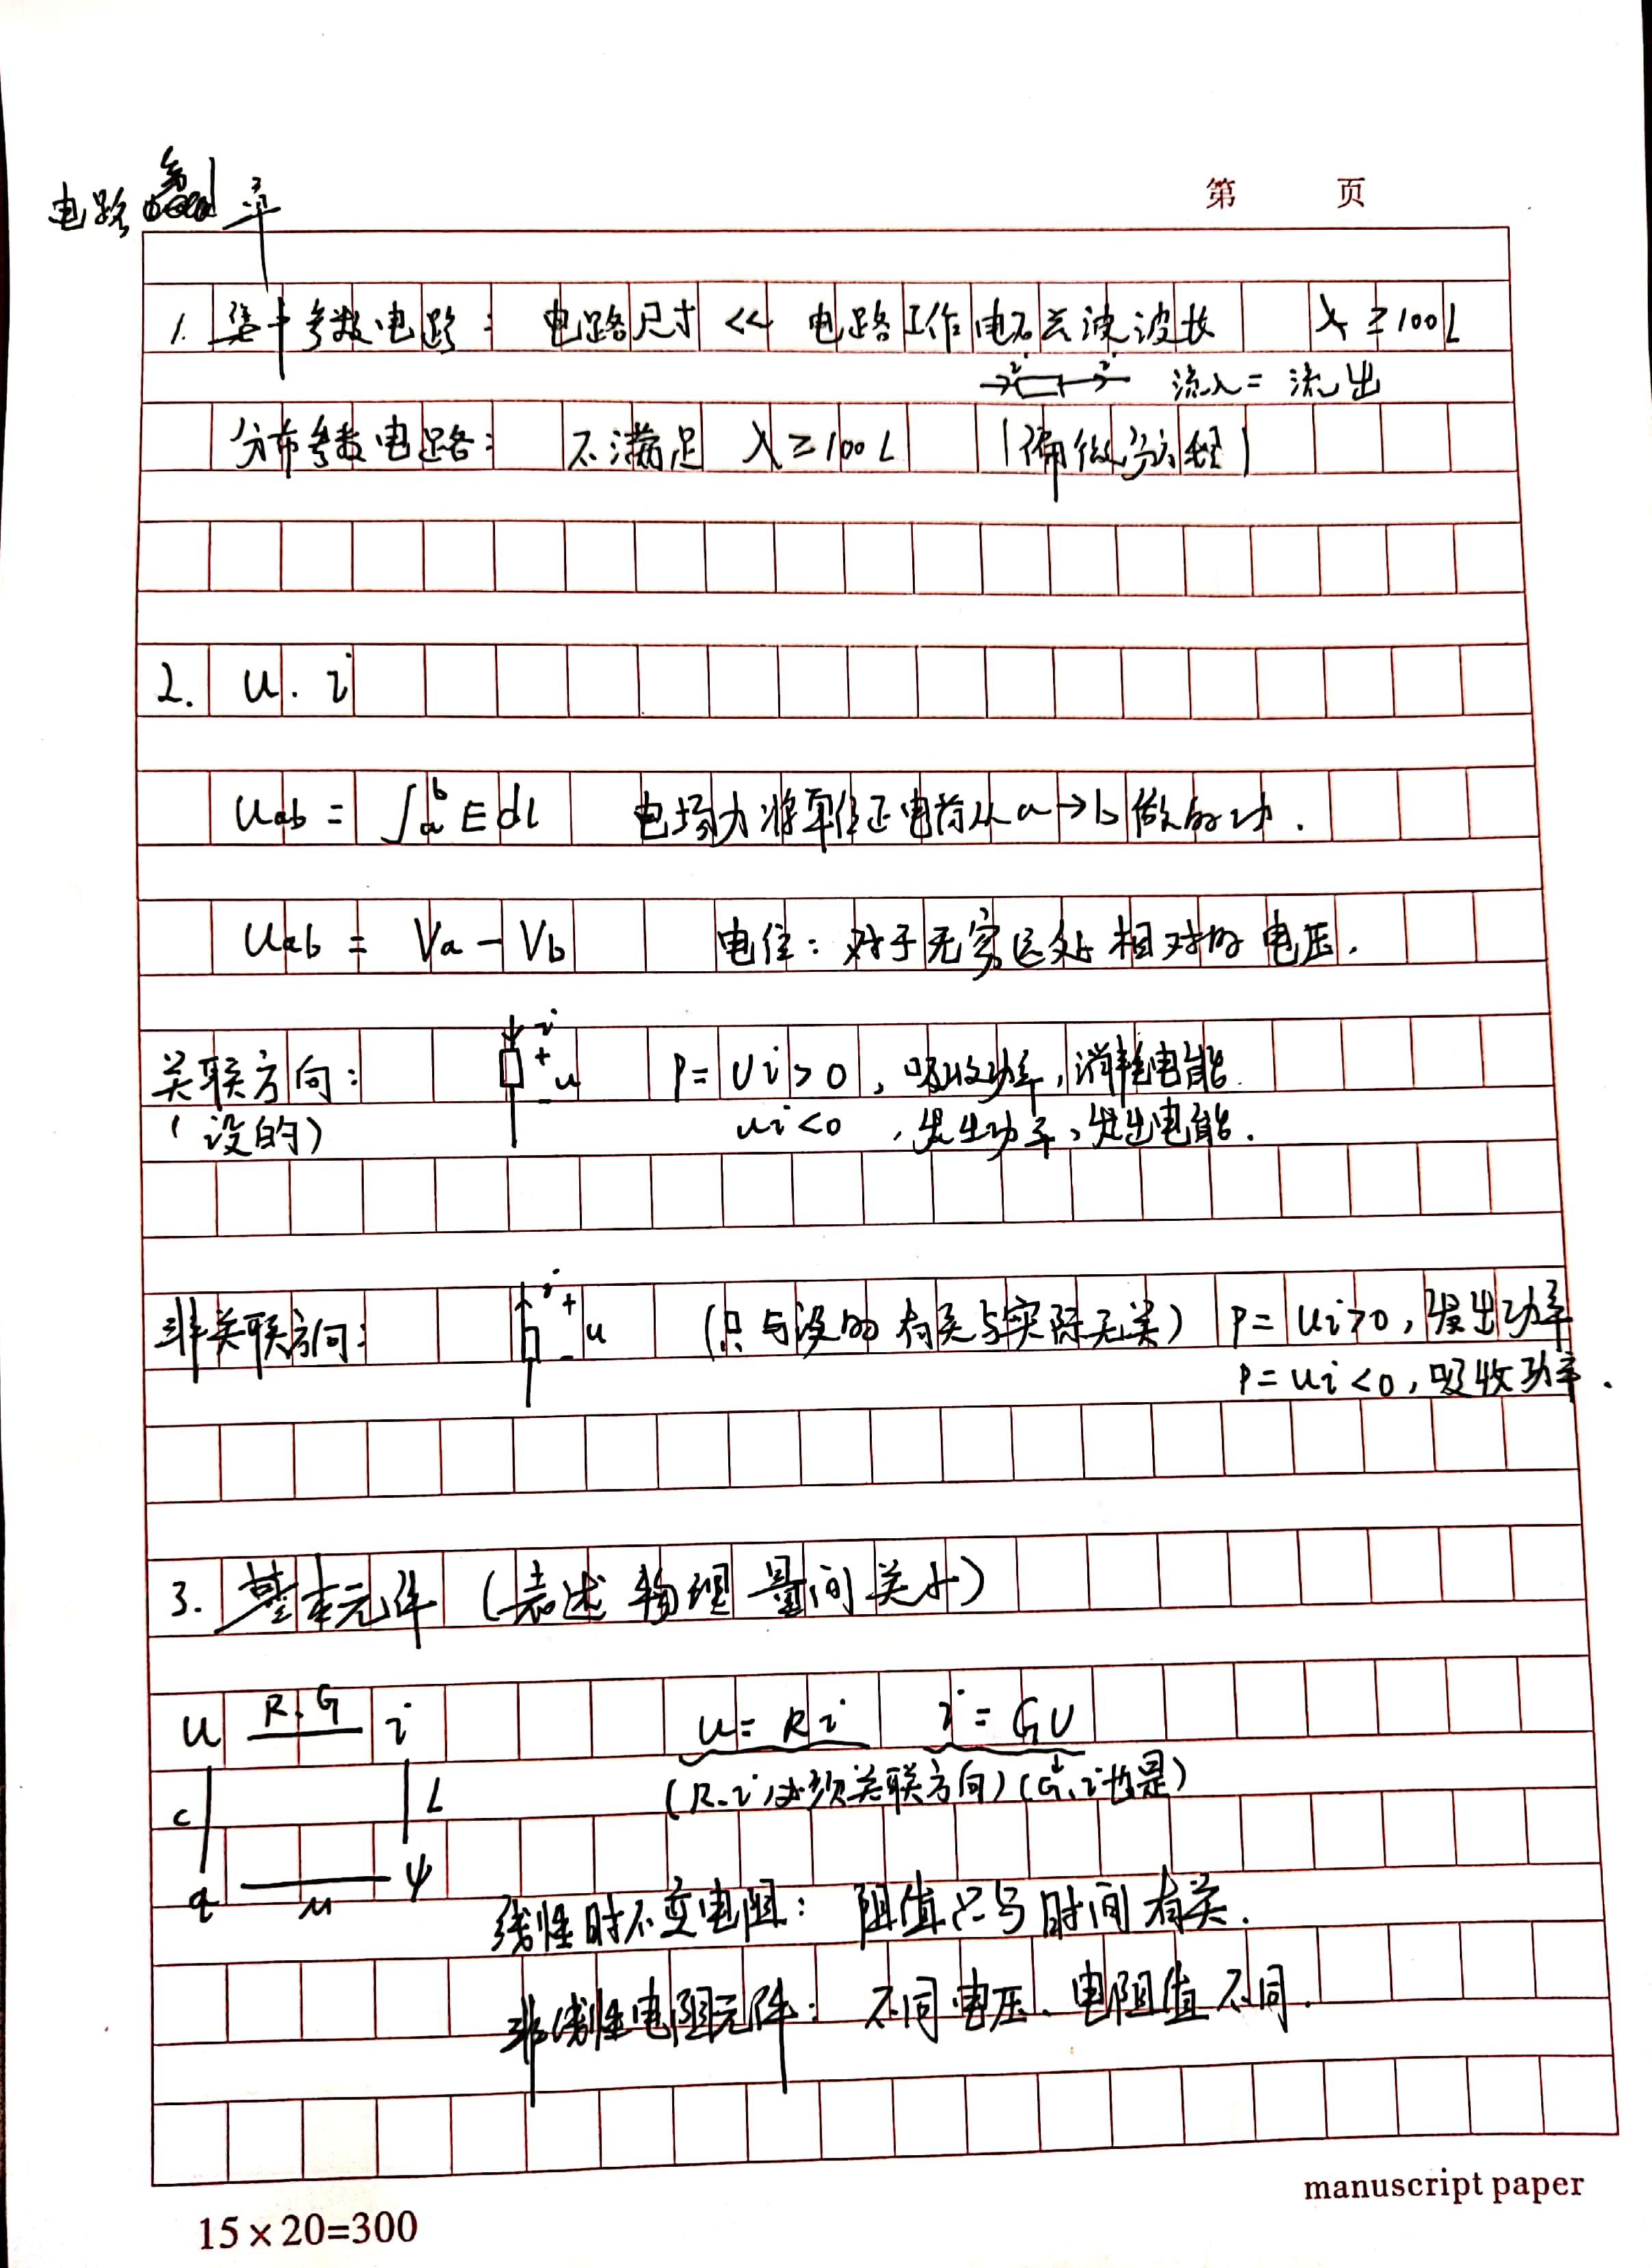 第 页
电路 第1章
1. 集中参数电路： 电路尺寸 << 电路工作电磁波波长 λ≥100L
i i 流入=流出
分布参数电路： 不满足 λ≥100L (偏微分方程)
2. u. i
Uab = ∫ₐᵇ E dl 电场力将单位正电荷从a→b做的功.
Uab = Va - Vb 电位：对于无穷远处相对的电压.
关联方向： i + u - P= Ui>0, 吸收功率, 消耗电能.
(设的) ui<0 , 发出功率, 发出电能.
非关联方向： i + u - (只与设的有关与实际无关) P= Ui>0, 发出功率
P= ui<0, 吸收功率.
3. 基本元件 (表述物理量间关系)
u R.G i u= Ri i=GU
C L (R.i必须关联方向) (G.i也是)
q M ψ
线性时不变电阻： 阻值只与时间有关.
非线性电阻元件： 不同电压、电阻值不同.
manuscript paper
15×20=300